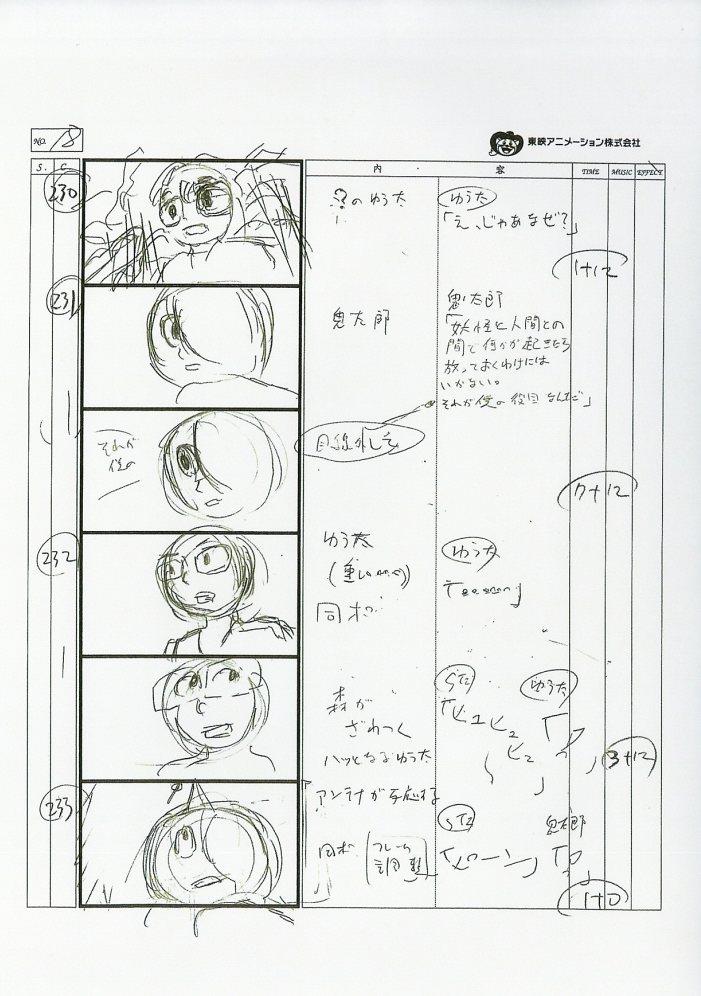 NO. 18
東映アニメーション株式会社
S. C. 内 容 TIME MUSIC EFFECT
230
?のゆう太
ゆう太
「え、じゃあなぜ?」
1+12
231
鬼太郎
鬼太郎
「妖怪と人間との
間で何かが起きたら
放っておくわけには
いかない。
それが僕の役目なんだ」
それが
僕の
目線外して
7+12
232
ゆう太
同ポ
ゆう太
森が
ざわつく
ハッとなるゆう太
SE
「ヒュヒュ
ヒュ
」
ゆう太
「?
」
3+12
233
アンテナが反応する
同ポ
フレーム
調整
SE
「ピローン」
鬼太郎
「?
」
1+0